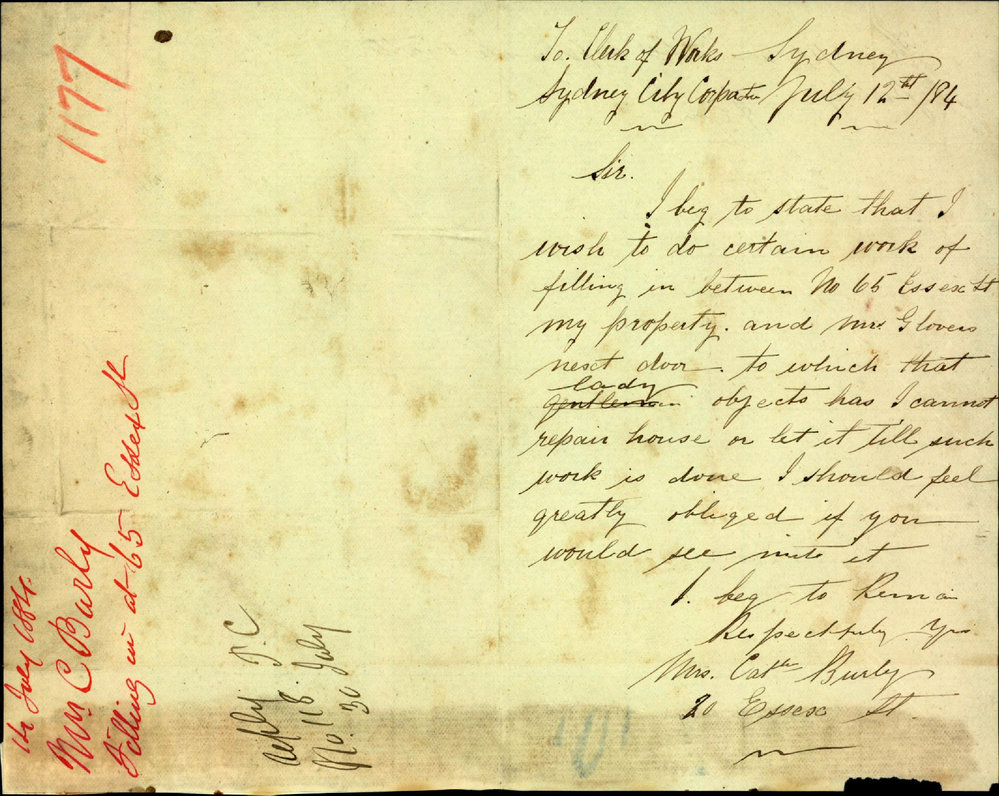 1177
14 July 1884.
Mrs C Burly
Filling in at 65 Essex St
Reply T. C
No. 118. 30 July
To. Clerk of Works Sydney
Sydney City Corpatn July 12th /84
Sir.
I beg to state that I
wish to do certain work of
filling in between No 65 Essex St
my property. and Mrs Glovers
next door. to which that
lady
gentleman objects has I cannot
repair house or let it till such
work is done I should feel
greatly obliged if you
would see into it
I. beg to Remain
Respectfully Yrs
Mrs. Cath Burly
20 Essex St.